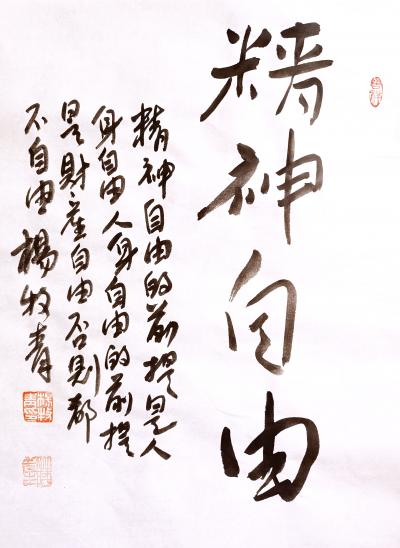 精神自由
精神自由的前提是人
身自由人身自由的前提
是財產自由否則都
不自由 楊牧青